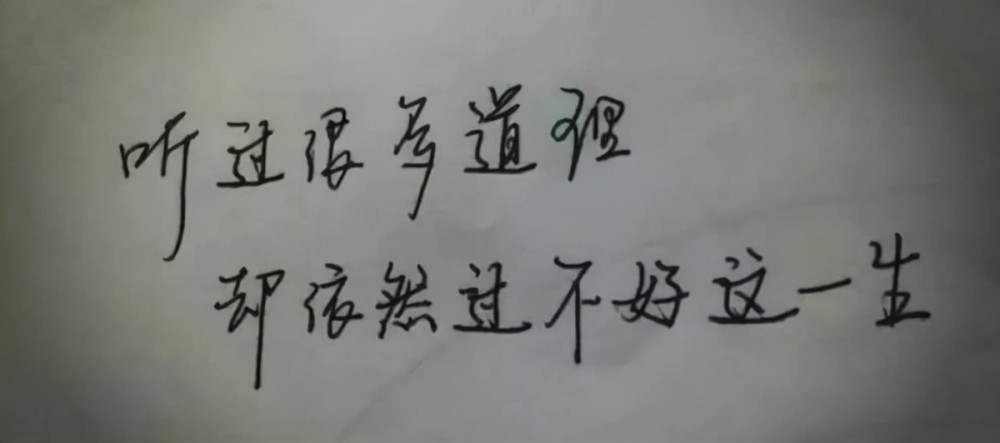 听过很多道理
却依然过不好这一生